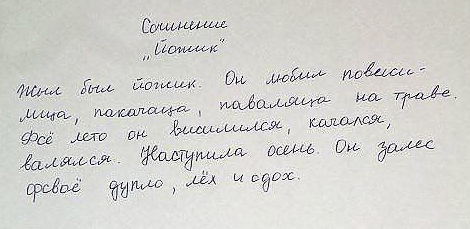 Сочинение
„Йожик"
Жыл был йожик. Он любил повеси-
мица, пакачаца, паваляца на траве.
Фсё лето он висимился, качался,
валялся. Наступила осень. Он залес
фсваё дупло, лёх и сдох.